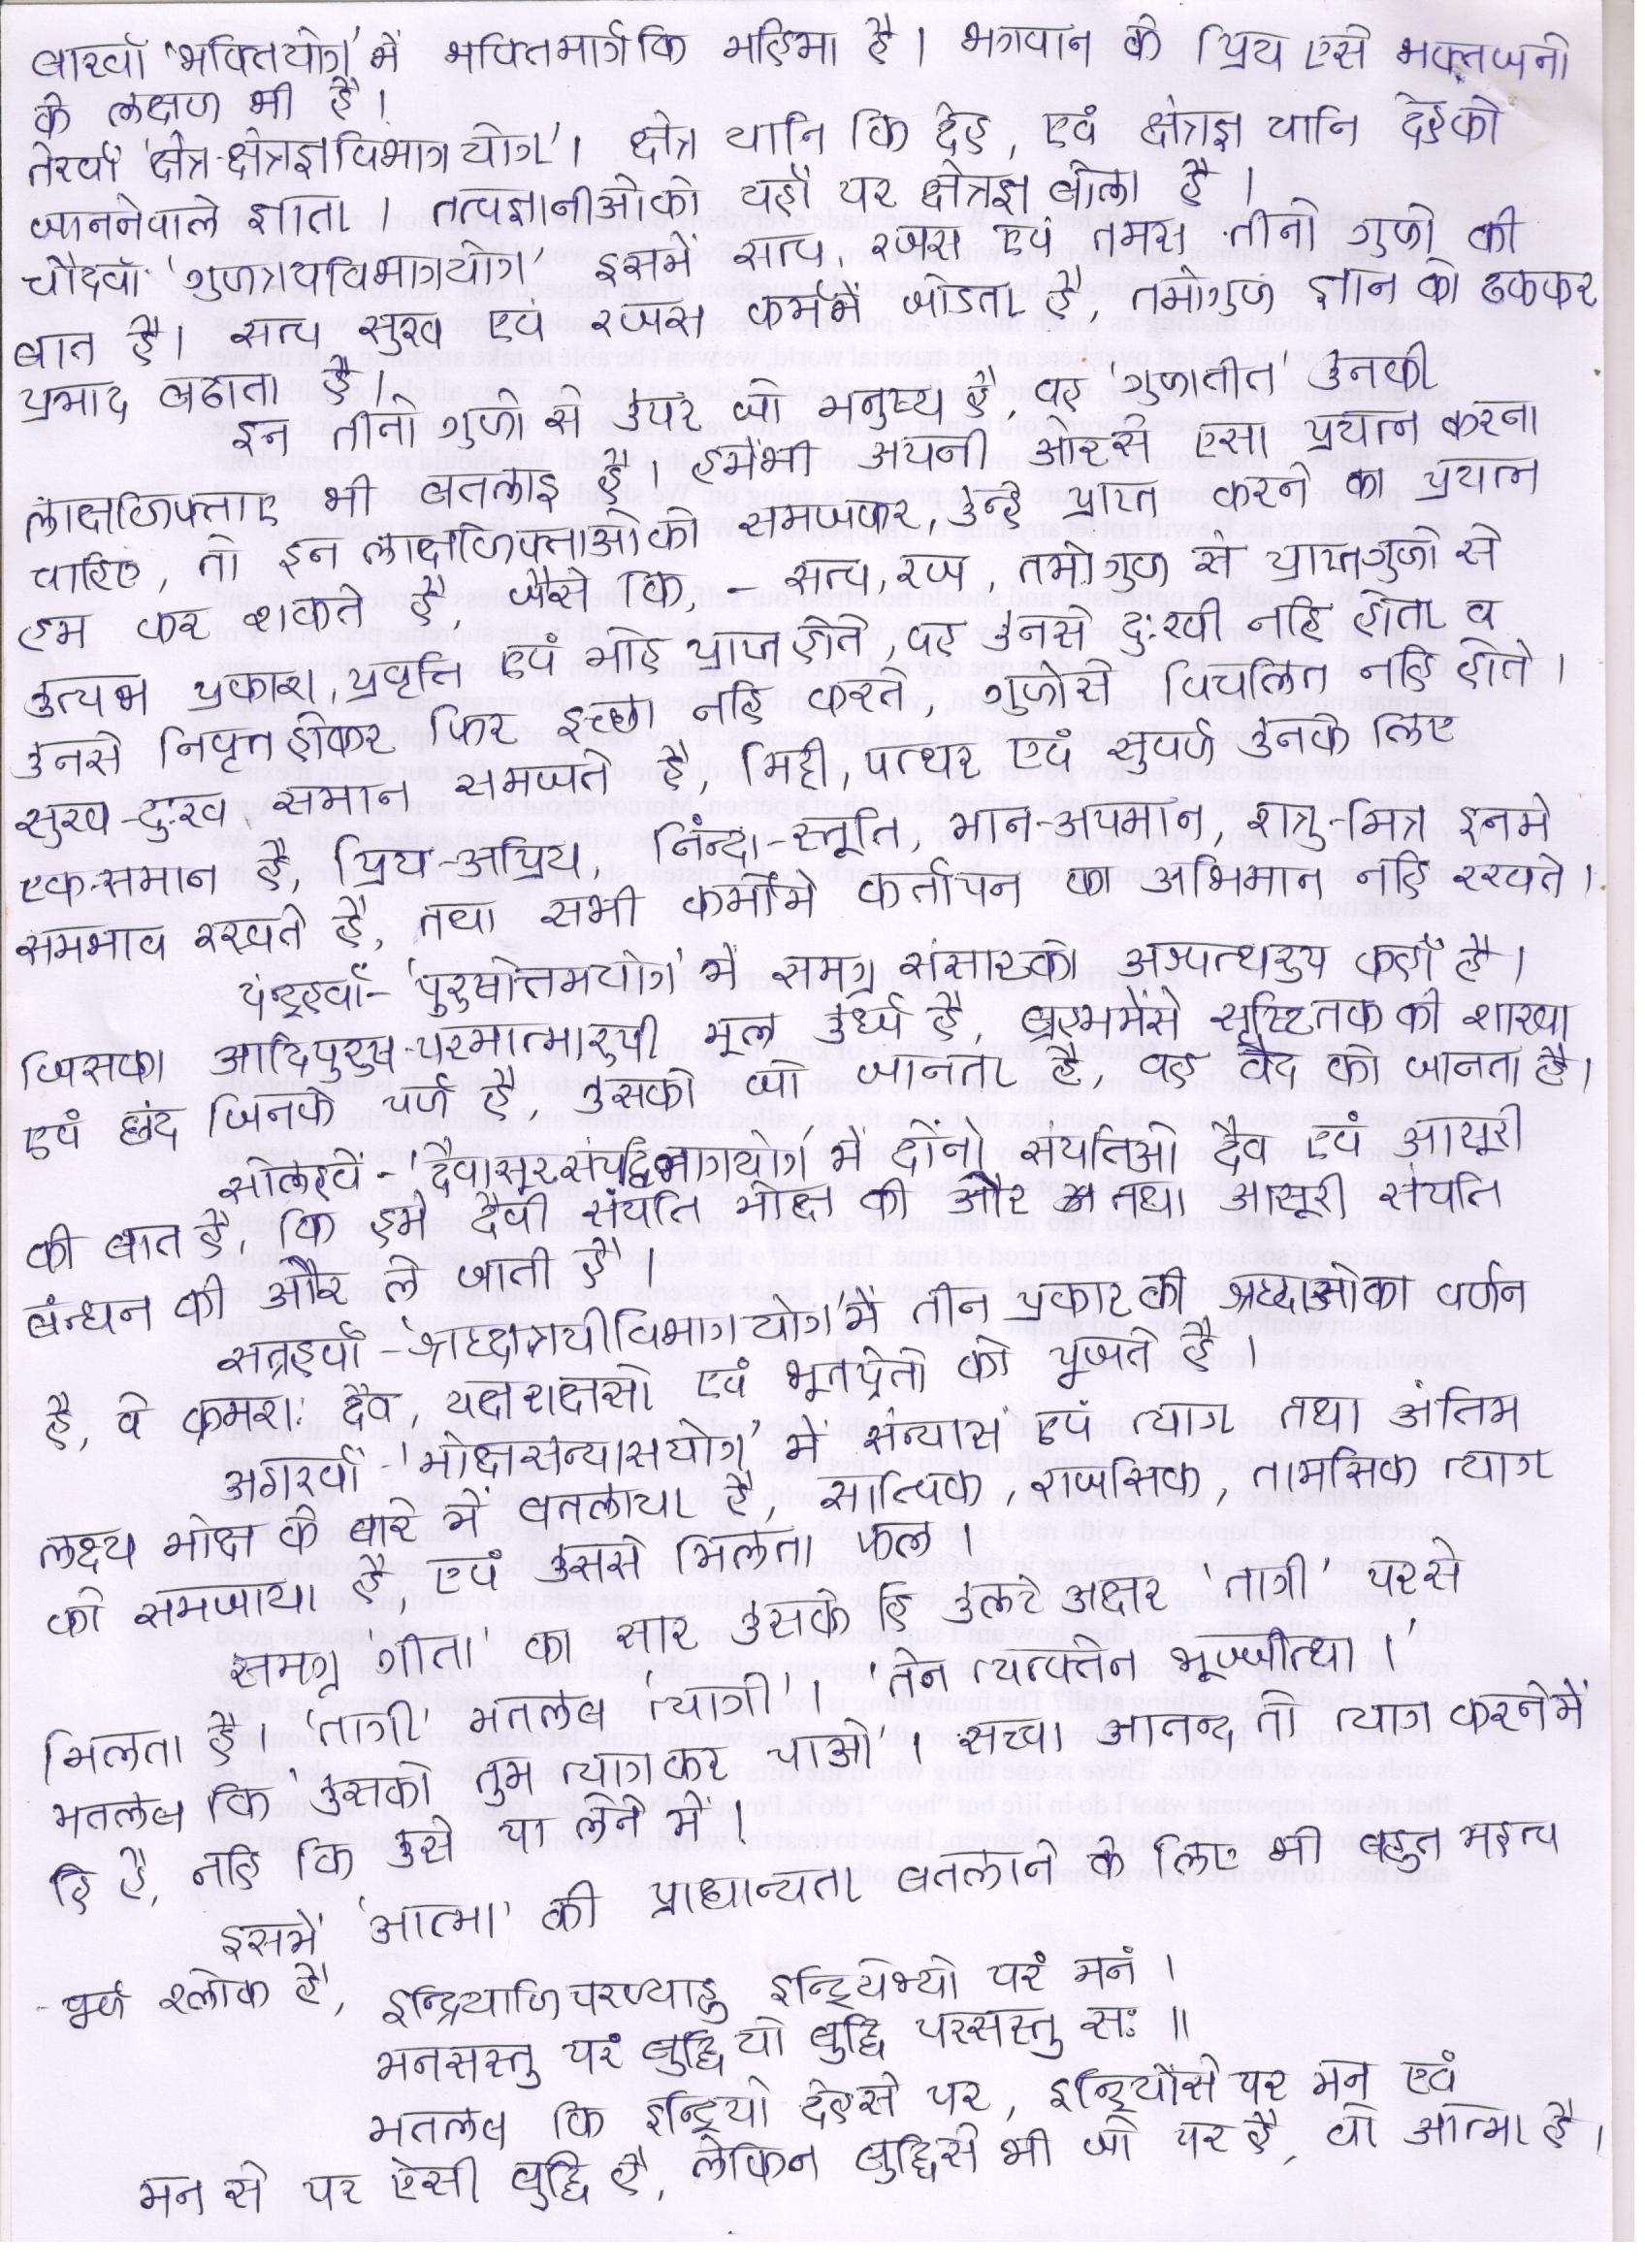 बारवाँ 'भक्तियोग' में भक्तिमार्ग कि महिमा है। भगवान के प्रिय एसे भक्तजनो
के लक्षण भी है।
तेरवाँ 'क्षेत्र-क्षेत्रज्ञविभाग योग'। क्षेत्र यानि कि देह, एवं क्षेत्रज्ञ यानि देहको
जाननेवाले ज्ञाता। तत्वज्ञानीओको यहाँ पर क्षेत्रज्ञ बोला है।
चौदवाँ 'गुणत्रयविभागयोग' इसमें सत्व, रजस एवं तमस तीनो गुणो की
बात है। सत्व सुख एवं रजस कर्ममें जोडता है, तमोगुण ज्ञान को ढककर
प्रमाद बढाता है।
इन तीनो गुणो से उपर जो मनुष्य है, वह 'गुणातीत' उनकी
लाक्षणिक्ताए भी बतलाइ है। हमेभी अपनी ओरसे एसा प्रयास करना
चाहिए, तो इन लाक्षणिक्ताओको समजकर, उन्हे प्राप्त करने का प्रयत्न
हम कर शकते है, जैसे कि, - सत्व, रज, तमोगुण से प्राप्तगुणो से
उत्पन्न प्रकाश, प्रवृत्ति एवं मोह प्राप्त होते, वह उनसे दुःखी नहि होता व
उनसे निवृत्त होकर फिर इच्छा नहि करते, गुणोसे विचलित नहि होते।
सुख-दुःख समान समजते है, मिट्टी, पत्थर एवं सुवर्ण उनके लिए
एक-समान है, प्रिय-अप्रिय, निंन्दा-स्तूति, मान-अपमान, शत्रु-मित्र इनमे
समभाव रखते है, तथा सभी कर्मोमे कर्तापन का अभिमान नहि रखते।
पंन्द्रहवाँ- 'पुरुषोतमयोग' में समग्र संसारको अश्वत्थरुप कहाँ है।
जिसका आदिपुरुष-परमात्मारुपी मूल उर्ध्व है, ब्रहममेंसे सृष्टितक की शाखा
एवं छंद जिनके पर्ण है, उसको जो जानता है, वह वेद को जानता है।
सोलहवे- 'दैवासूरसंपद्विभागयोग' में दोंनो संपतिओ दैव एवं आसूरी
की बात है कि हमे दैवी संपति मोक्ष की और तथा आसूरी संपति
बंन्धन की और ले जाती है।
सत्रहवाँ - श्रध्धात्रयीविभाग योग' में तीन प्रकार की श्रध्धाओका वर्णन
है, वे क्रमशः दैव, यक्षराक्षसो एवं भूतप्रेतो को पूजते है।
अठारवाँ 'मोक्षसंन्यासयोग' में संन्यास एवं त्याग तथा अंतिम
लक्ष्य मोक्ष के बारे में बतलाया है, सात्विक, राजसिक, तामसिक त्याग
को समजाया है, एवं उससे मिलता फल।
समग्र 'गीता' का सार उसके हि उलटे अक्षर 'तागी' परसे
मिलता है। 'तागी' मतलब 'त्यागी'। 'तेन त्यक्तेन भूञ्जीत्था।'
मतलब कि 'उसको तुम त्यागकर पाओ'। सच्चा आनन्द तो त्याग करनेमें
हि है, नहि कि उसे पा लेने में।
इसमें 'आत्मा' की प्राधान्यता बतलाने के लिए भी बहुत महत्व
-पूर्ण श्लोक है, इन्द्रियाणि परण्याहु इन्द्रियेभ्यो परं मनं।
मनसस्तु परं बुद्धि यो बुद्धि परसस्तु सः॥
मतलब कि इन्द्रियो देहसे पर, इन्द्रियोंसे पर मन एवं
मन से पर ऐसी बुद्धि है, लेकिन बुद्धिसे भी जो पर है, वो आत्मा है।